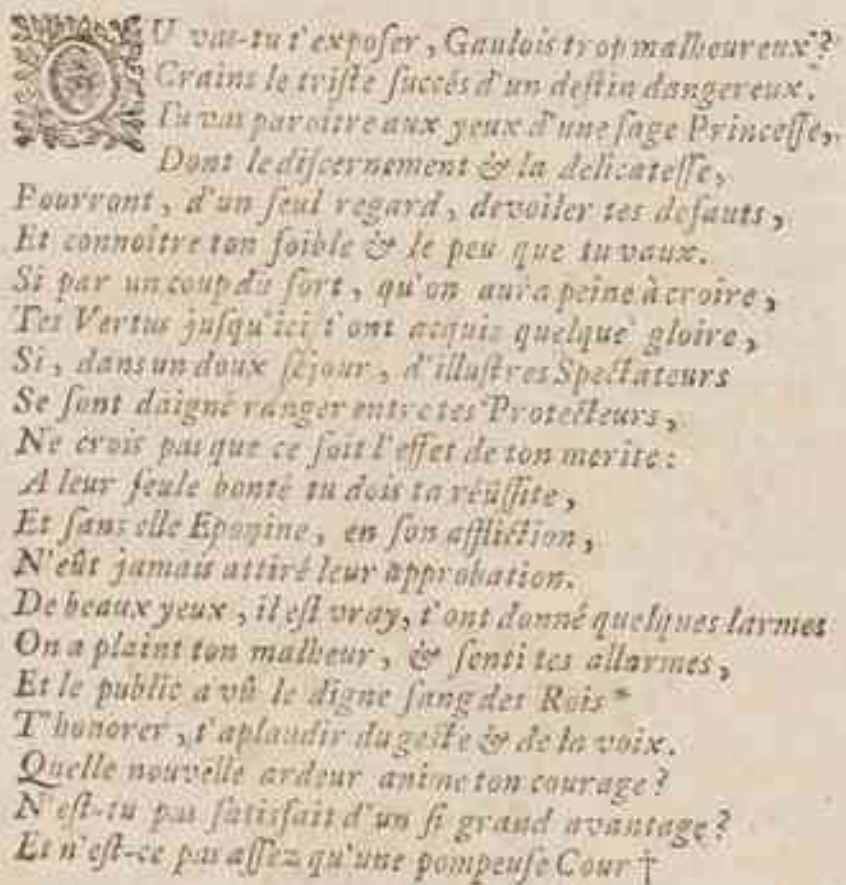 OU vas-tu t'exposer, Gaulois trop malheureux?
Crains le triſte ſuccés d'un deſtin dangereux.
Tu vas paroitre aux yeux d'une ſage Princeſſe,
Dont le diſcernement & la delicateſſe,
Pourront, d'un ſeul regard, devoiler tes defauts,
Et connoître ton foible & le peu que tu vaux.
Si par un coup du ſort, qu'on aura peine à croire,
Tes Vertus juſqu'ici t'ont acquis quelque gloire,
Si, dans un doux ſéjour, d'illuſtres Spectateurs
Se ſont daigné ranger entre tes Protecteurs,
Ne crois pas que ce ſoit l'effet de ton merite:
A leur ſeule bonté tu dois ta réüſſite,
Et ſans elle Eponine, en ſon affliction,
N'eût jamais attiré leur approbation.
De beaux yeux, il eſt vray, t'ont donné quelques larmes
On a plaint ton malheur, & ſenti tes allarmes,
Et le public a vû le digne ſang des Rois *
T'honorer, t'aplaudir du geſte & de la voix.
Quelle nouvelle ardeur anime ton courage?
N'eſt-tu pas ſatisfait d'un ſi grand avantage?
Et n'eſt-ce pas aſſez qu'une pompeuſe Cour †